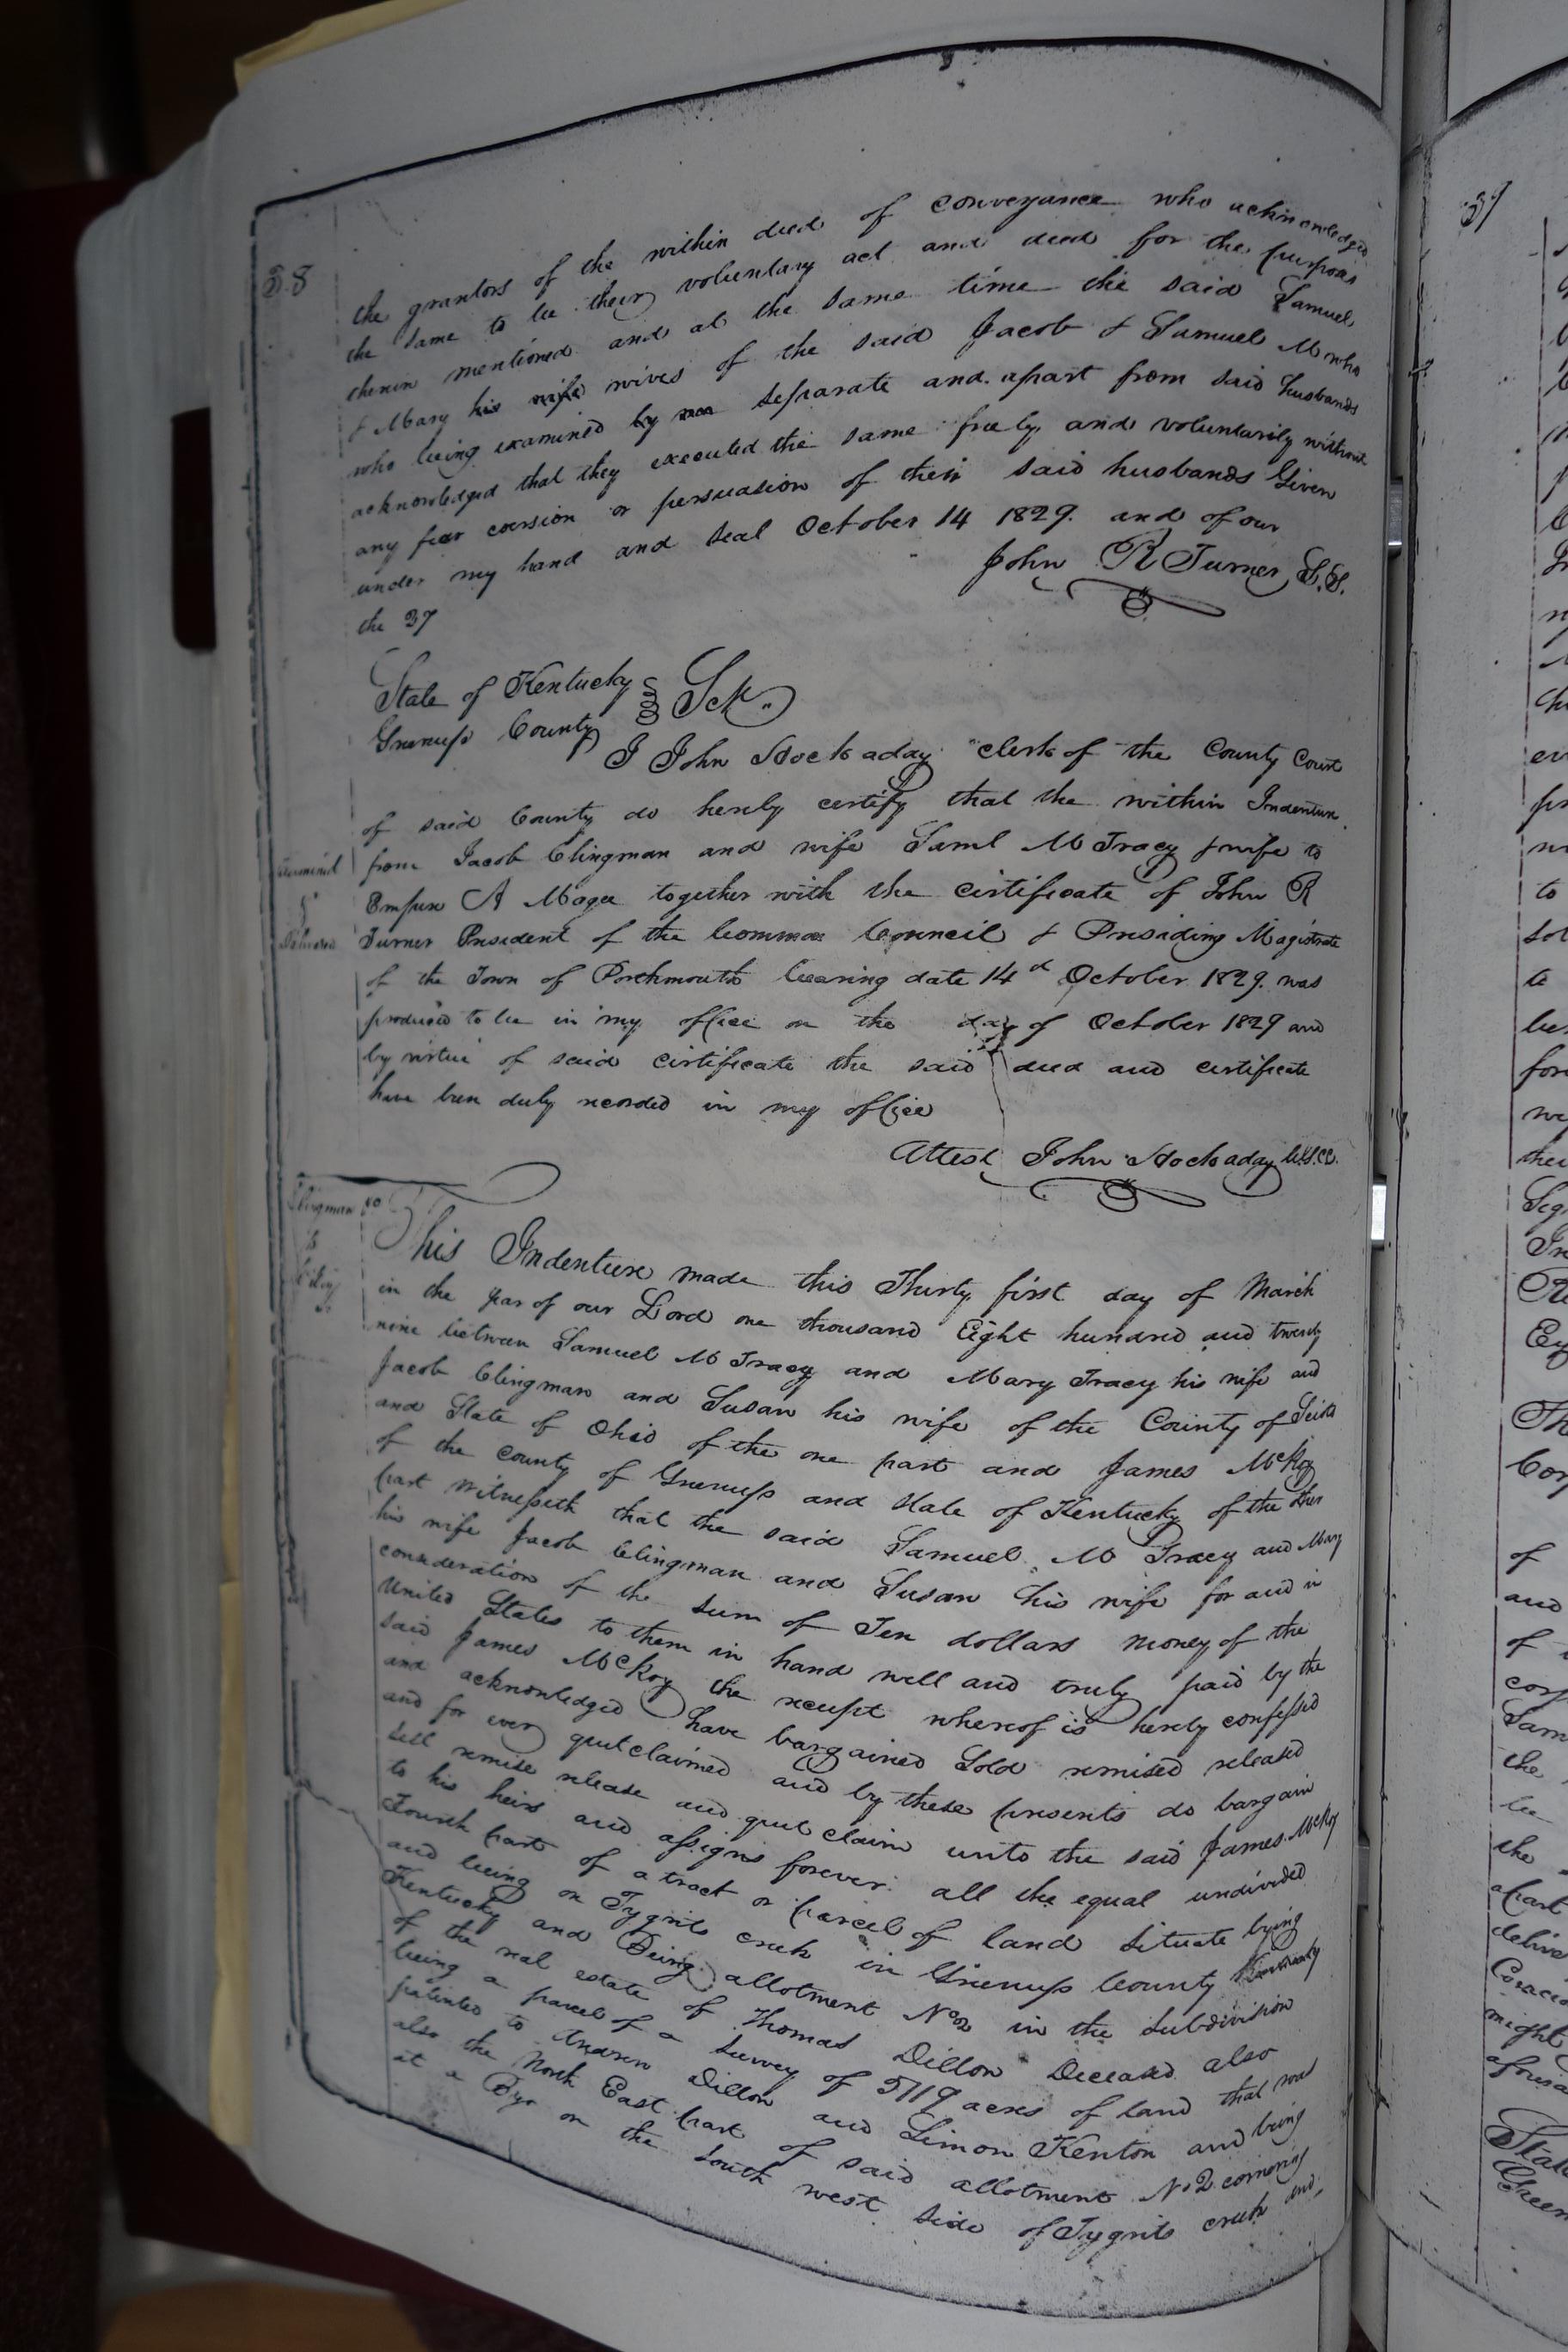 38
the grantors of the within deed of conveyance who acknowledged
the same to be their voluntary act and deed for the purposes
therein mentioned and at the same time the said Samuel
& Mary his wife wives of the said Jacob & Samuel M who
who being examined by me separate and apart from said husbands
acknowledged that they executed the same freely and voluntarily without
any fear coersion or persuasion of their said husbands Given
under my hand and seal October 14 1829. and of our
the 37
John R Turner S.S.
State of Kentucky
Greenup County Sct.
I John Hockaday clerk of the County Court
of said County do hereby certify that the within Indenture
from Jacob Clingman and wife Saml M Tracy & wife to
A Magee together with the certificate of John R
Turner President of the Common Council & Presiding Magistrate
of the Town of Porthmouth bearing date 14d October 1829. was
produced to be in my office on the day of October 1829 and
by virtue of said certificate the said deed and certificate
have been duly recorded in my office
Attest John Hockaday
Examined
&
Delivered
Clingman &c
to
This Indenture made this Thirty first day of March
in the year of our Lord one thousand Eight hundred and twenty
nine between Samuel M Tracy and Mary Tracy his wife and
Jacob Clingman and Susan his wife of the County of Scioto
and State of Ohio of the one part and James McKoy
of the county of Greenup and State of Kentucky of the other
part witnesseth that the said Samuel M Tracy and Mary
his wife Jacob Clingman and Susan his wife for and in
consideration of the sum of Ten dollars money of the
United States to them in hand well and truly paid by the
said James McKoy the receipt whereof is hereby confessed
and acknowledged have bargained Sold remised released
and for ever quitclaimed and by these presents do bargain
sell remise release and quit claim unto the said James McKoy
to his heirs and assigns forever all the equal undivided
Fourth part of a tract or parcel of land situate lying
and being on Tygrits creek in Greenup County Kentucky
Kentucky and Being allotment No 2 in the subdivision
of the real estate of Thomas Dillon Deceased also
being a parcel of a survey of 5119 acres of land that was
patented to Andrew Dillon and Simon Kenton and being
also the North East part of said allotment No 2 cornering
at a on the south west side of Tygrits creek and
37